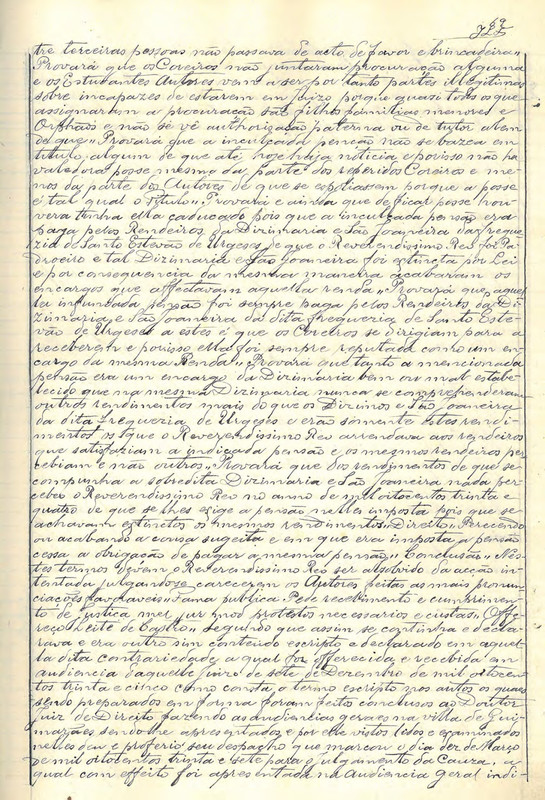 69
tre terceiras pessoas não passava de acto de favor e brincadeira"
Provará que os Coreiros não juntaram procuração alguma
e os Estudantes Autores vem a ser por tanto partes illegitimas
sobre incapazes de estarem em juizo porque quasi todos os que
assignaram a procuração são filhos familias menores e
Orphãos e não se vê authorização paterna ou de tutor alem
de que" Provará que a inculcada penção não se bazea em
titulo algum de que até hoje haja noticia e por isso não ha
valedora posse mesmo da parte dos referidos Coreiros e me-
nos da parte dos Autores de que se copiassem porque a posse
é tal qual o titulo". Provará e ainda que de ficar posse hou-
vera tenha ella caducado pois que a inculcada pensão era
paga pelos Rendeiros da Dizimaria e São Joaneira da fregue-
zia de Santo Estevão de Urgeses de que o Reverendissimo Reo foi Pa-
droeiro e tal Dizimaria e São Joaneira foi extincta por Lei
e por consequencia da mesma maneira acabavam os
encargos que affectavam aquella renda" Provará que aquel-
la inculcada pensão foi sempre paga pelos Rendeiros da Di-
zimaria e São Joaneira da dita freguezia de Santo Este-
vão de Urgeses a estes é que os Coreiros se dirigiam para a
receberem e por isso ella foi sempre reputada como um en-
cargo da mesma Renda" Provará que tanto a mencionada
pensão era um encargo da Dizimaria bem ou mal estabe-
lecido que na mesma Dizimaria nunca se comprehenderam
outros rendimentos mais do que os Dizimos e São Joaneira
da dita freguezia de Urgeses e erão somente estes rendi-
mentos os que o Reverendissimo Reo arrendava aos rendeiros
que satisfaziam a indicada pensão e os mesmos rendeiros per-
cebiam e não outros" Provará que dos rendimentos de que se
compunha a sobredita Dizimaria e São Joaneira nada per-
cebeo o Reverendissimo Reo no anno de mil oitocentos trinta e
quatro de que se lhes exige a pensão nelles imposta pois que se
achavam extinctos os mesmos rendimentos" Direito" Perecendo
ou acabando a cousa sugeita e em que era imposta a pensão
cessa a obrigação de pagar a mesma pensão" Conclusão" Nes-
tes termos devem o Reverendissimo Reo ser absolvido da acção in-
tentada julgandose carecerem os Autores feitas as mais pronun-
ciações favoraveis fama publica Pede recebimento e cumprimen-
to de justiça mel jur nos protestos necessarios e custas, Offe-
reço Leite de Castro" Segundo que assim se continha e decla-
rava e era outro sim conteudo escripto e declarado em aquel-
la dita contrariedade a qual foi offerecida e recebida em
audiencia daquelle juizo de sete de Dezembro de mil oitocen-
tos trinta e cinco como consta o termo escripto nos autos os quaes
sendo preparados em forma foram feito conclusos ao Doutor
Juiz de Direito fazendo as audiencias geraes na villa de Gui-
marães sendo lhe apresentados e por elle vistos lidos e examinados
nelles deu e proferio seu despacho que marcou o dia dez de Março
de mil oitocentos trinta e sete para o julgamento da Cauza, a
qual com effeito foi apresentada na Audiencia geral indi-